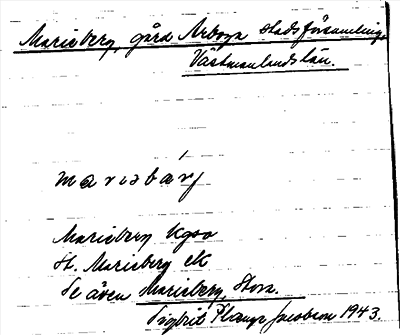 Marieberg, gård Arboga stadsförsamling,
Västmanlands län.
marιəbárj
Marieberg Kgso
St. Marieberg ek
Se även Marieberg, Stora.
Sigbrit Plænge Jacobson 1943.